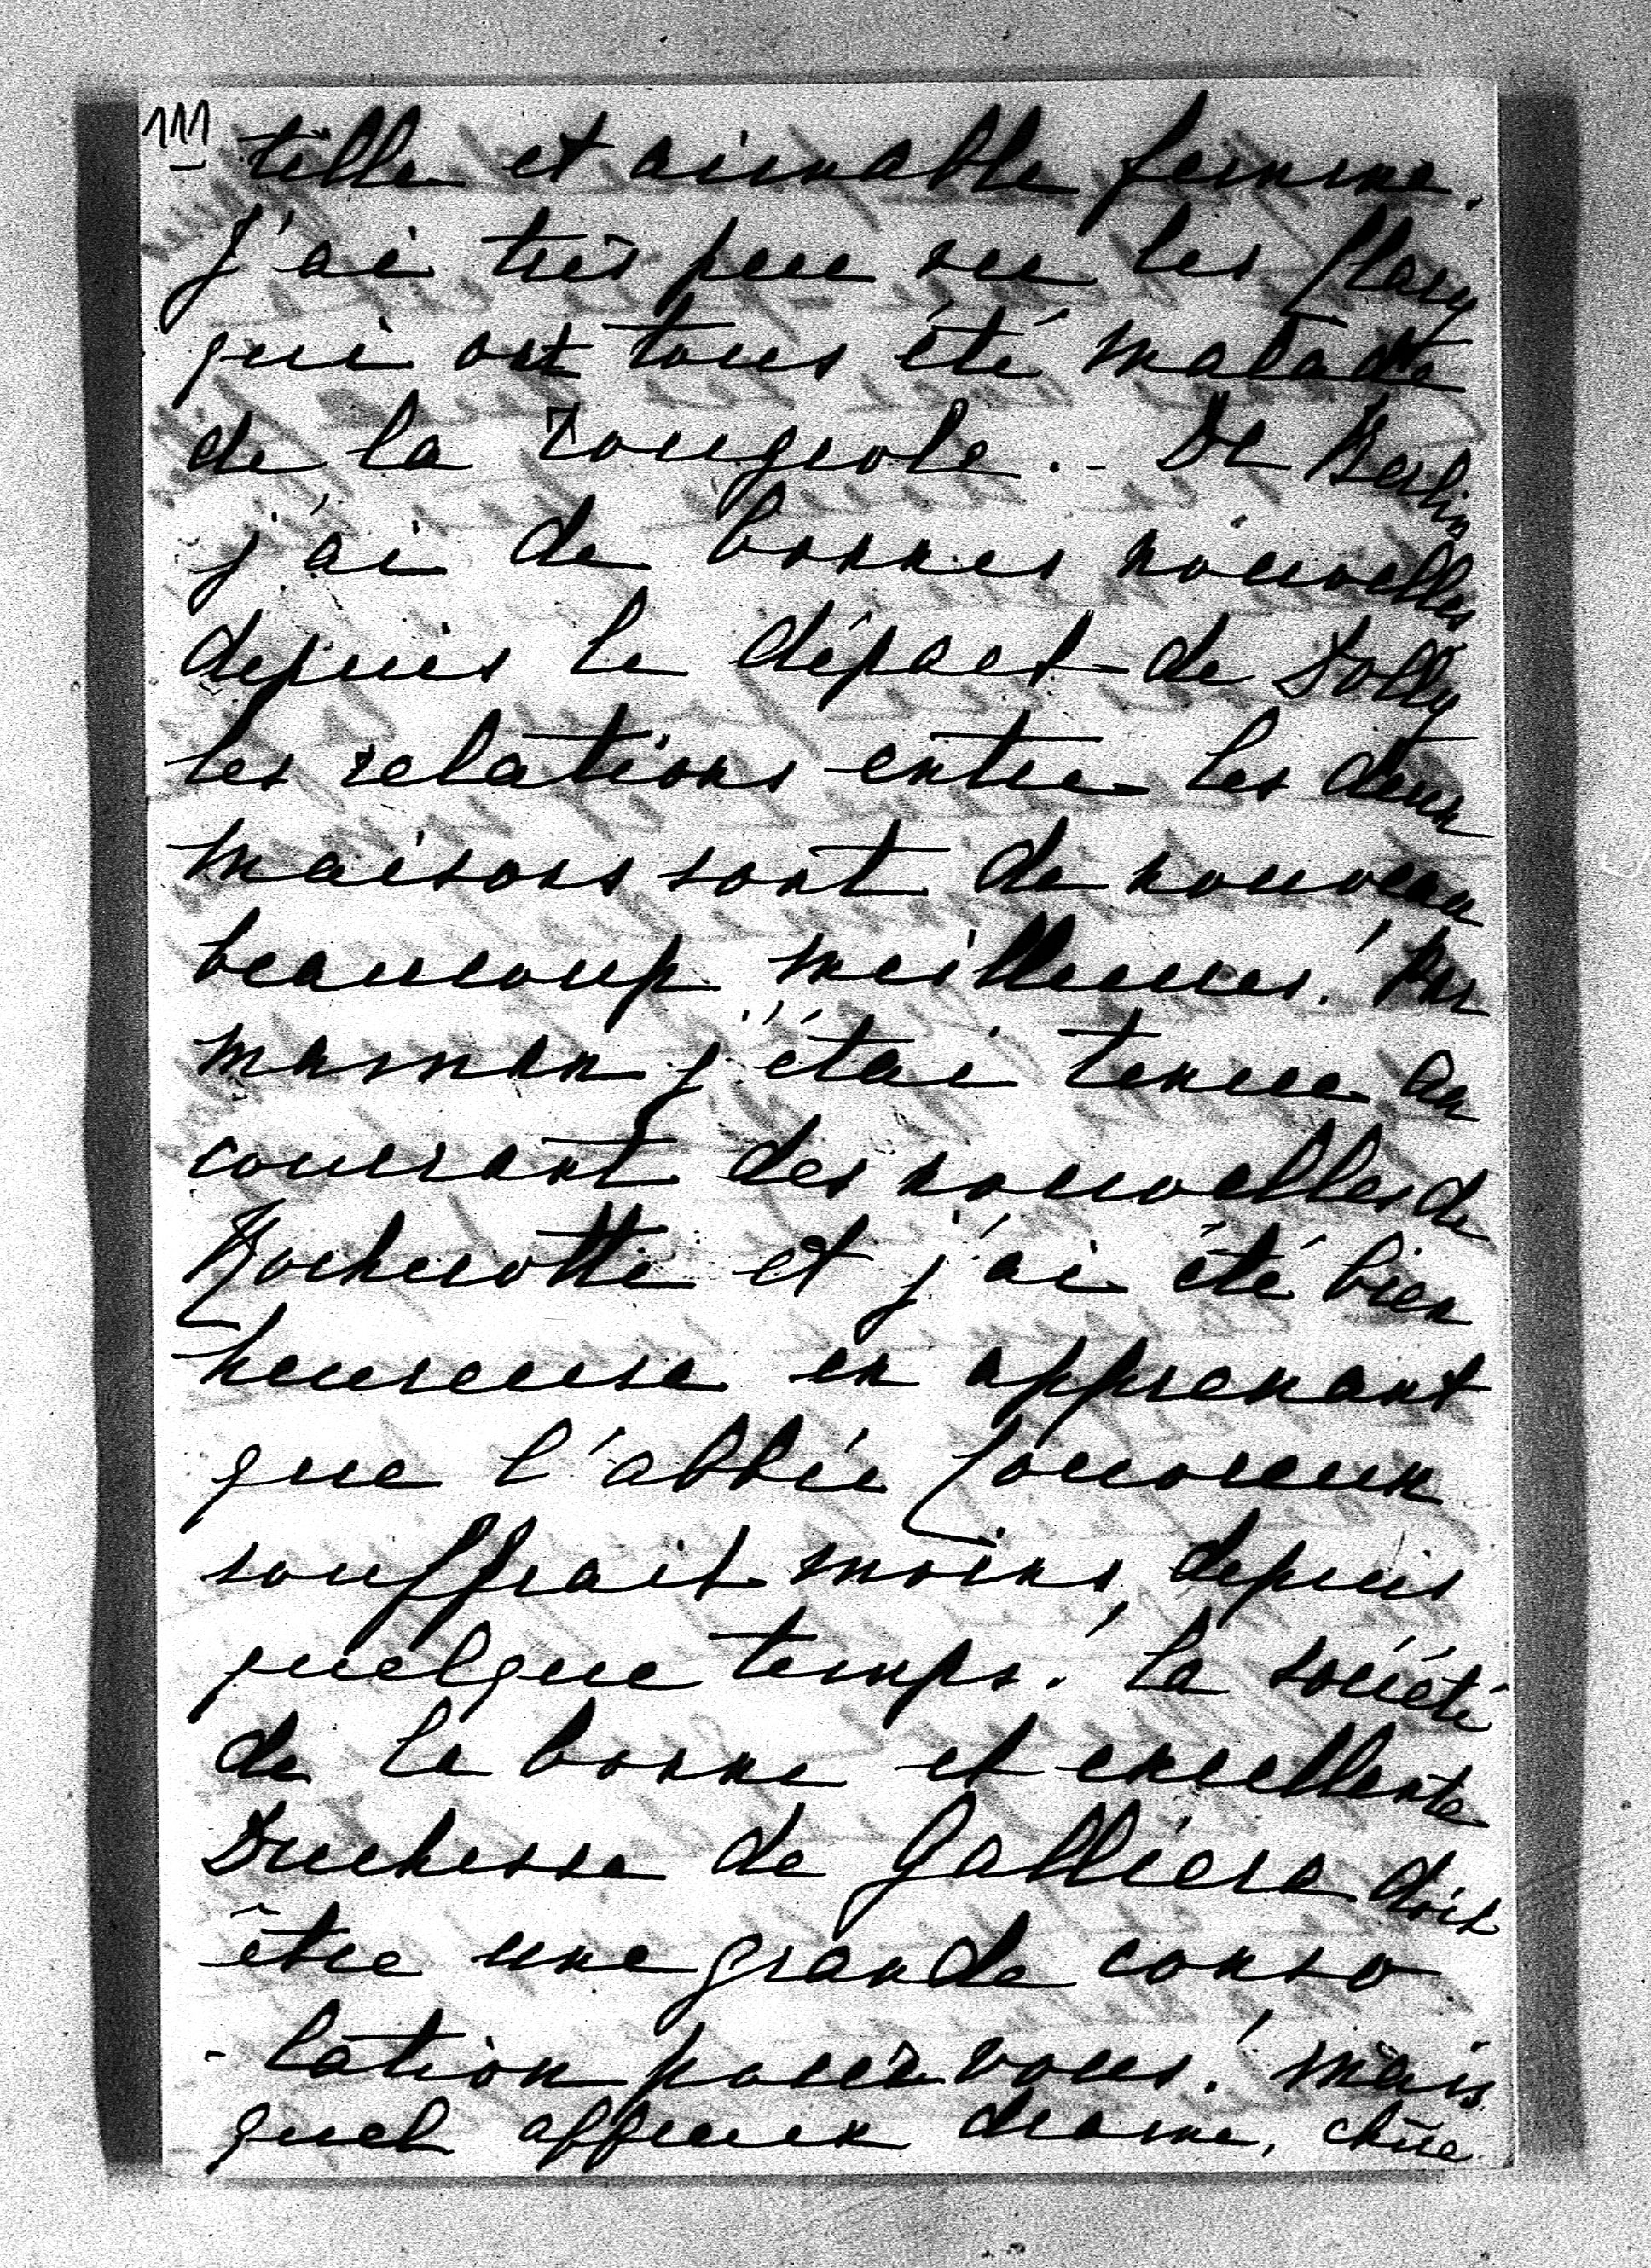 111
- tille et aimable femme.
J'ai très peu vu les Clary
qui ont tous été malade
de la rougeole. - De Berlin
j'ai de bonnes nouvelles
depuis le départ de Dolly
les relations entre les deux
maisons sont de nouveau
beaucoup meilleures! Par
maman j'étai tenue au
courant des nouvelles de
Rochecotte et j'ai été bien
heureuse en apprenant
que l'abbée
souffrait moins, depuis
quelque temps! La société
de la bonne et excellente
Duchesse de Galliera doit
être une grande conso
- lation pour vous! mais
quel affreux drame, chère